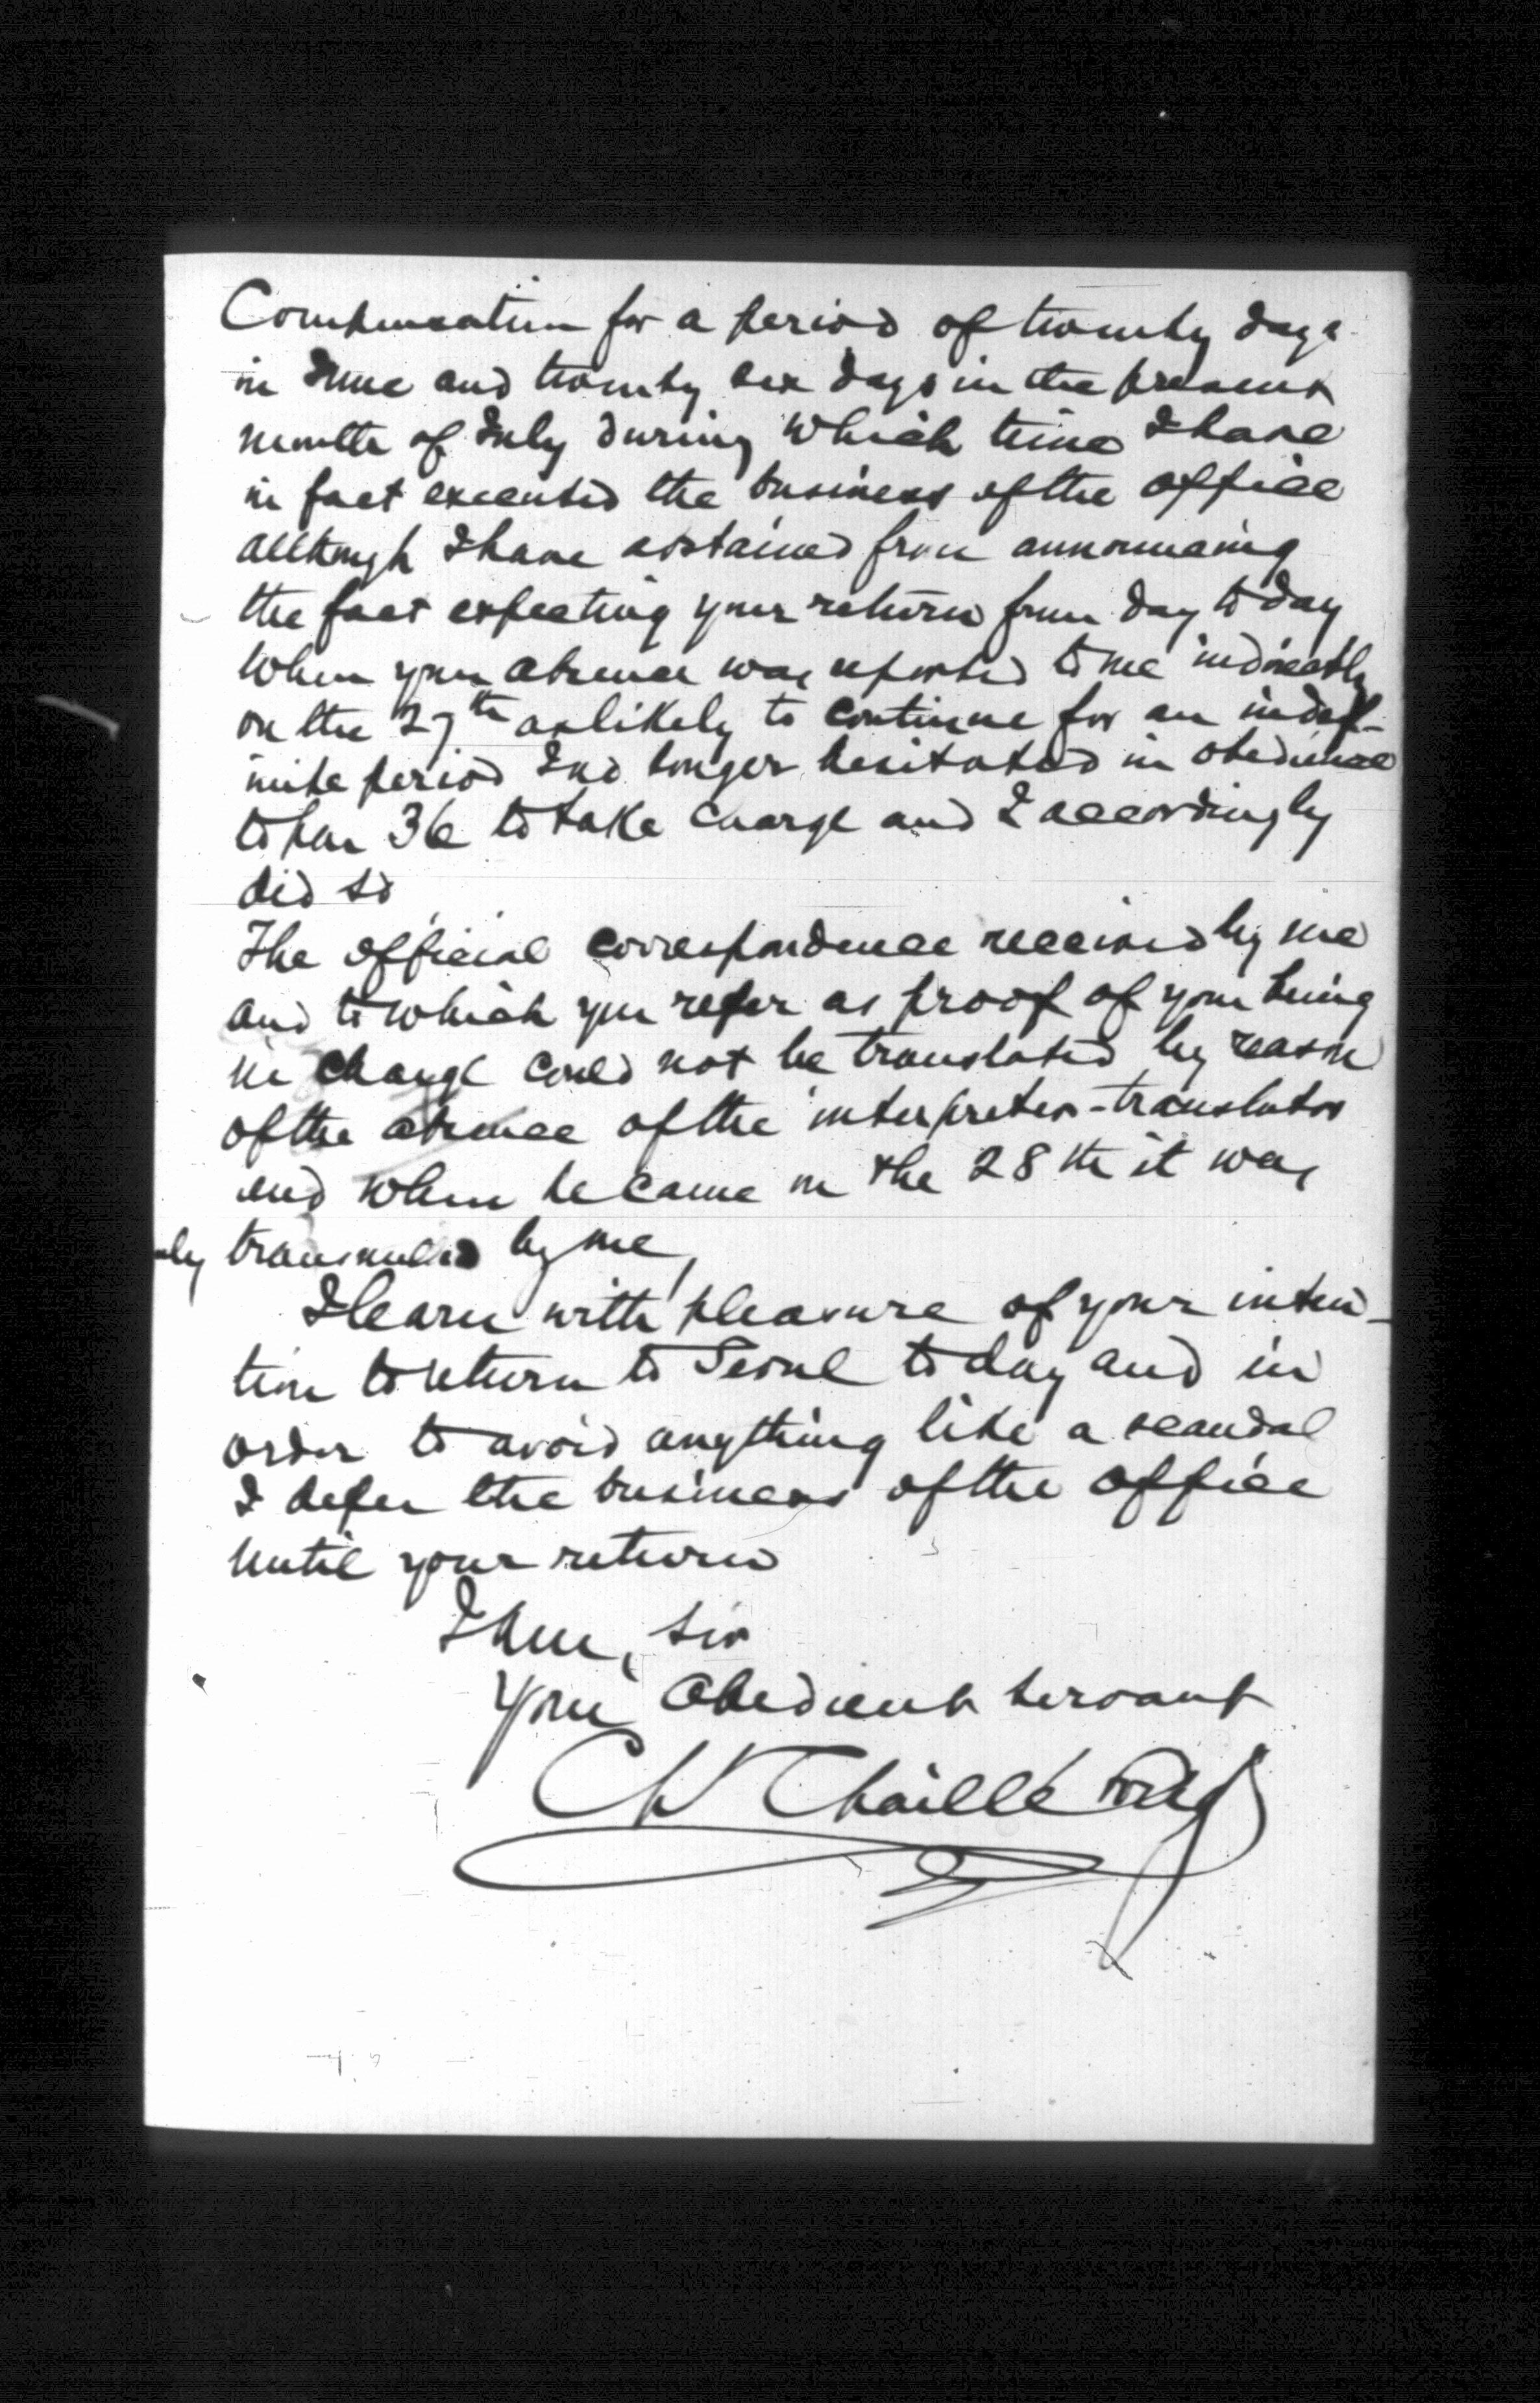 Compensation for a period of twenty days
in June and twenty six days in the present
month of July during which time I have
in fact executed the business of the office
although I have abstained from announcing
the fact expecting your return from day to day
When your absence was reported to me indirectly
on the 27th as likely to continue for an indef-
inite period I no longer hesitated in obedience
to par 36 to take charge and I accordingly
did so
The official correspondence received by me
and to which you refer as proof of your being
in charge could not be translated by reason
of the absence of the interpreter-translator
and when he came on the 28th it was
transmitted by me,
I learn with pleasure of your inten-
tion to return to Seoul today and in
order to avoid anything like a scandal
I defer the business of the office
until your return
I am, Sir
Your obedient servant
Ch Chaillé Long